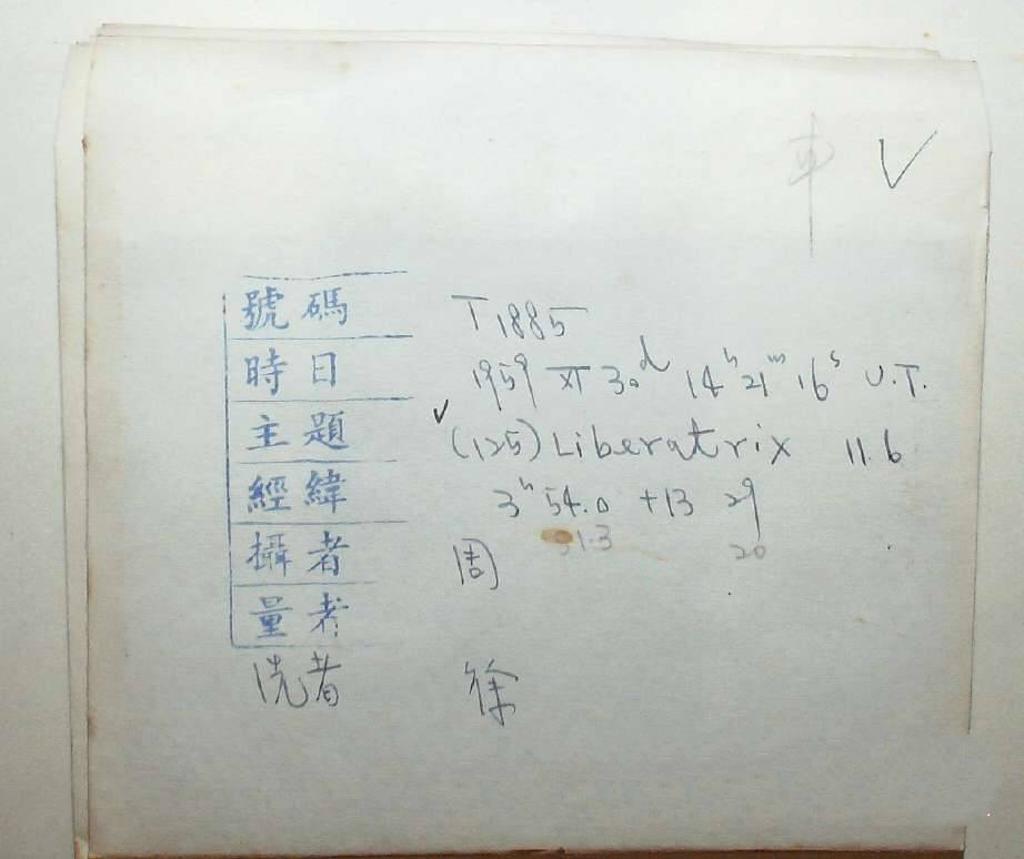 號碼 T1885
時日 1959 XI 30ᵈ 14ʰ21ᵐ16ˢ U.T.
主題 (125) Liberatrix 11.6
經緯 3ʰ54.0 +13 29
51.3 20
攝者 周
量者
洗者 徐